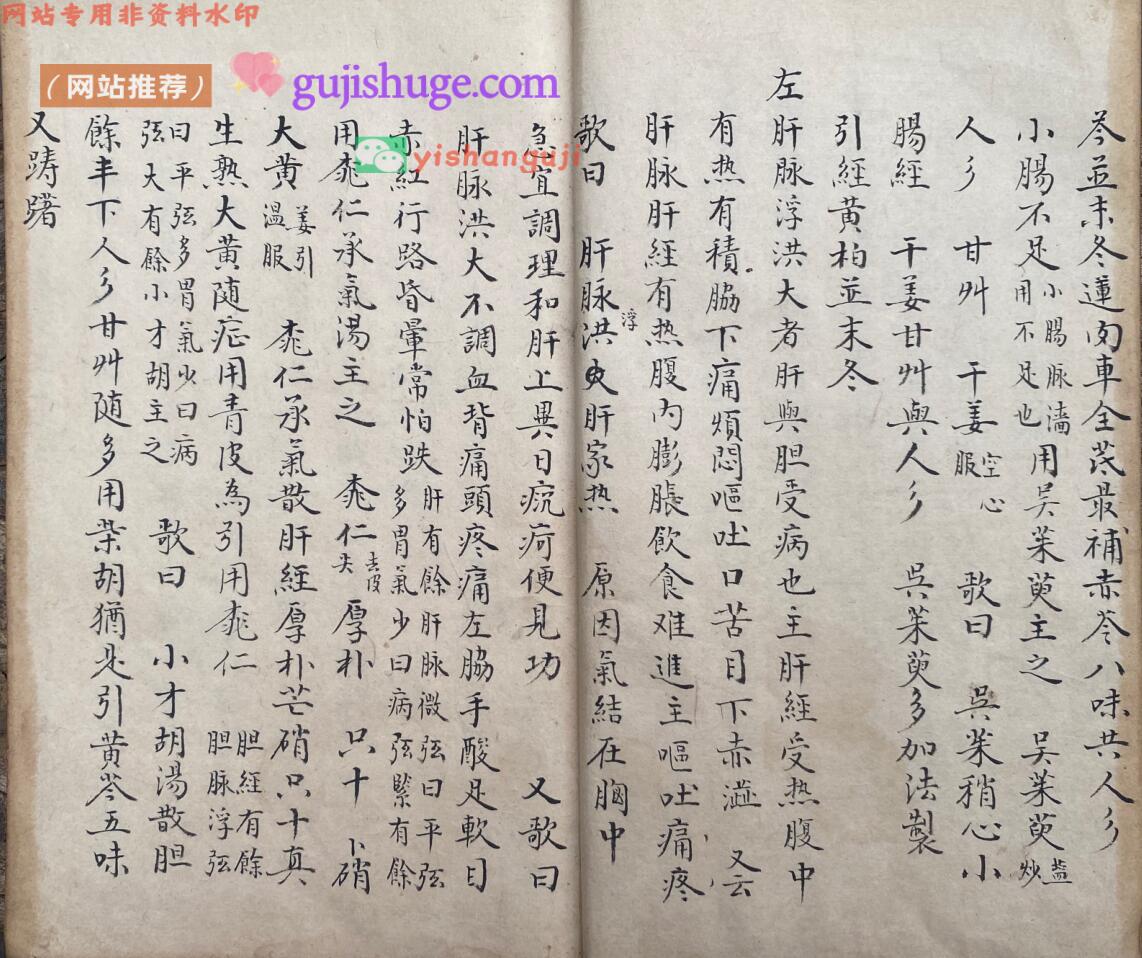 网站专用非资料水印
（网站推荐）
gujishuge.com
yishanguji
芩並末冬蓮肉車全茋最補赤苓八味共人乡
小腸不足小腸脉濇用不足也用吴茱萸主之 吴茱萸盐炒
人乡 甘艸 干姜空心服 歌曰 吴茱稍心小
腸經 干姜甘艸與人乡 吴茱萸多加法製
引經黄柏並末冬
左肝脉浮洪大者肝與胆受病也主肝經受热腹中
有热有積脇下痛煩悶嘔吐口苦目下赤澁 又云
肝脉肝經有热腹内膨脹飲食难進主嘔吐痛疼
歌曰 肝脉浮洪大肝家热 原因氣結在胸中
急宜調理和肝上異日疣疴便見功 又歌曰
肝脉洪大不調血背痛頭疼痛左脇手酸足軟目
赤紅行路昏暈常怕跌肝有餘肝脉微弦曰平弦多胃氣少曰病弦緊有餘
用桃仁承氣湯主之 桃仁去皮尖 厚朴 只十 卜硝
大黄姜引温服 桃仁承氣散肝經厚朴芒硝只十真
生熟大黄随症用青皮為引用桃仁 胆經有餘胆脉浮弦
曰平弦多胃氣少曰病弦大有餘小才胡主之 歌曰 小才胡湯散胆
餘半下人乡甘艸随多用柴胡猶是引黄芩五味
又躊躇